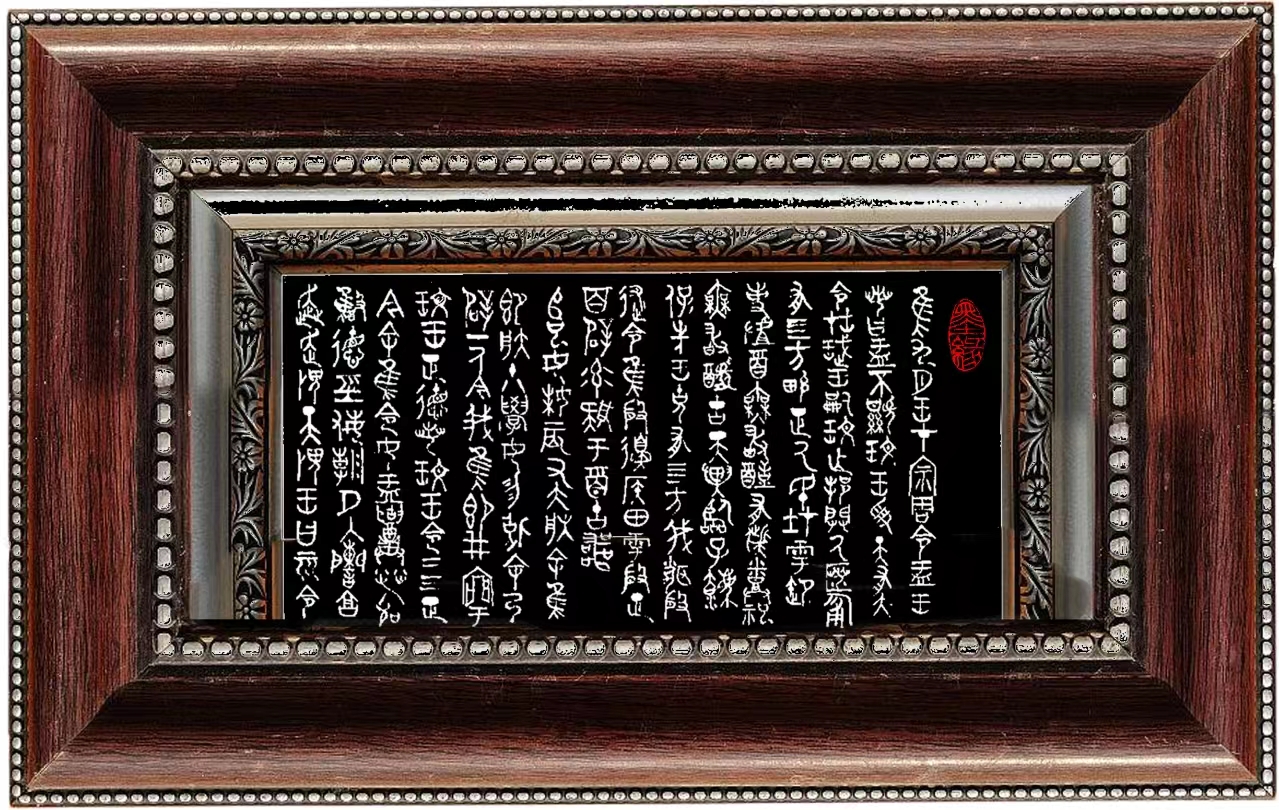 隹九月王才宗周令盂王
若曰盂不顯玟王受天有大
令在珷王嗣玟乍邦闢厥匿匍
有四方畯正厥民在雩御
事酉無敢有祡烝祀
無敢古天異臨子法
保先王有四方我聞殷
令隹殷邊侯田雩殷正
百辟率肄于酉古喪
巳女妹辰又大服余隹
即朕小學女勿余乃
辟一人今我隹即井于
玟王正德若玟王令二三正
今余隹令女盂召榮敬
德巠敏朝夕入享
奔走畏天畏王曰令